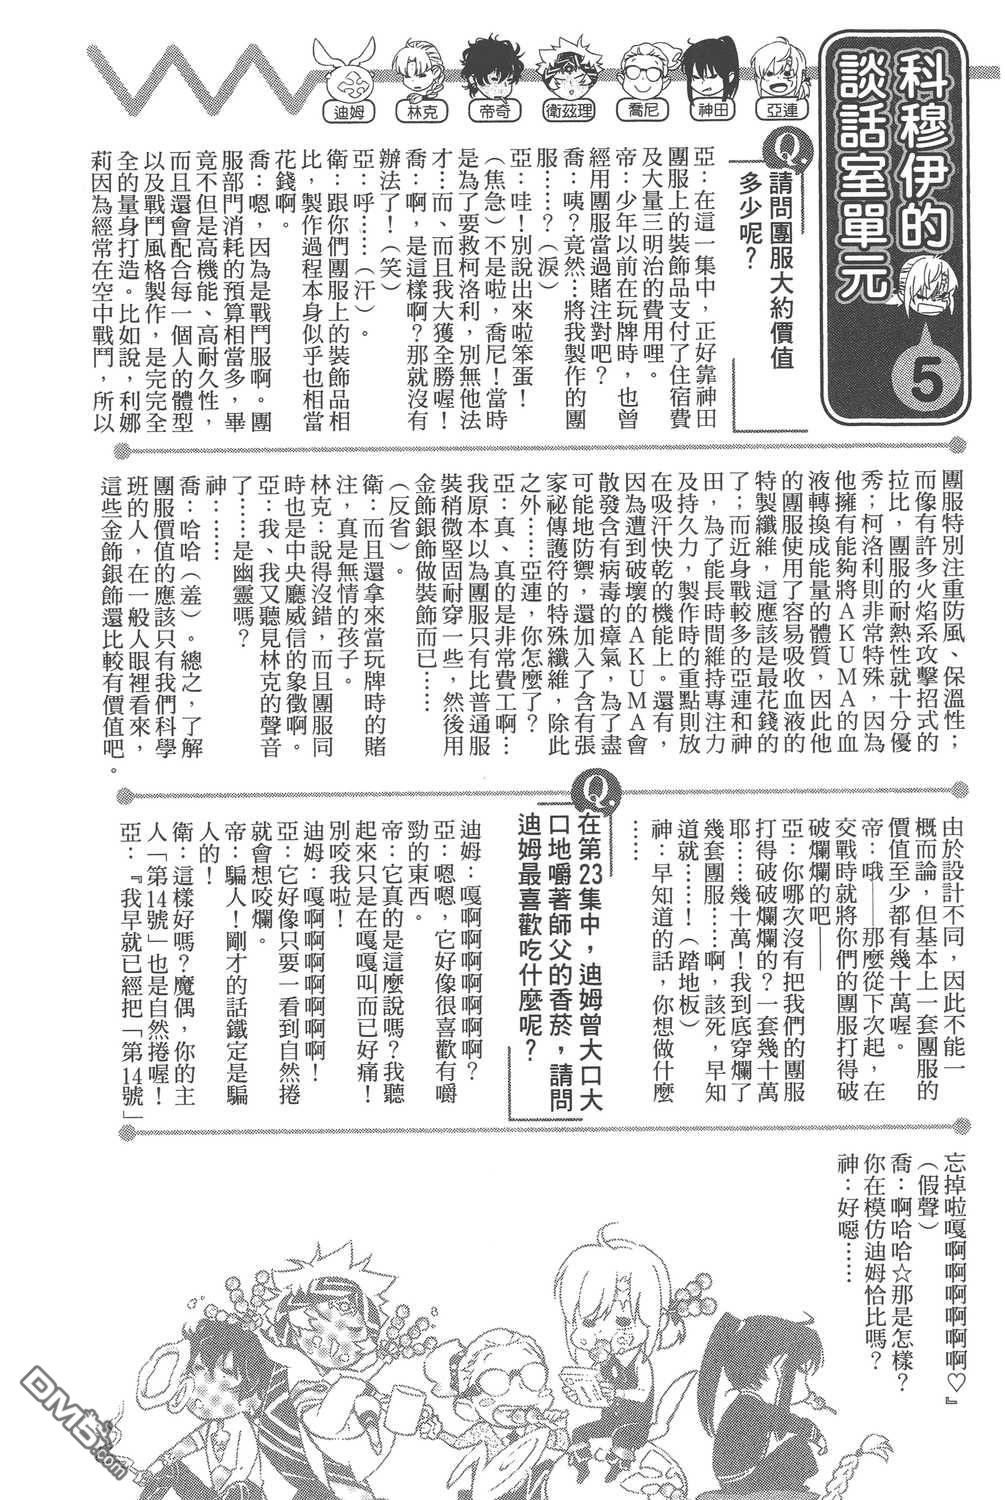 科穆伊的
談話室單元
5
亞連
神田
喬尼
衛茲理
帝奇
林克
迪姆
Q.
請問團服大約價值
多少呢？
亞：在這一集中，正好靠神田
團服上的裝飾品支付了住宿費
及大量三明治的費用哩。
帝：少年以前在玩牌時，也曾
經用團服當過賭注對吧？
喬：咦？竟然…將我製作的團
服……？（淚）
亞：哇！別說出來啦笨蛋！
（焦急）不是啦，喬尼！當時
是為了要救柯洛利，別無他法
才…而、而且我大獲全勝喔！
喬：啊，是這樣啊？那就沒有
辦法了！（笑）
亞：呼……（汗）。
衛：跟你們團服上的裝飾品相
比，製作過程本身似乎也相當
花錢啊。
喬：嗯，因為是戰鬥服啊。團
服部門消耗的預算相當多，畢
竟不但是高機能、高耐久性，
而且還會配合每一個人的體型
以及戰鬥風格製作，是完完全
全的量身打造。比如說，利娜
莉因為經常在空中戰鬥，所以
團服特別注重防風、保溫性；
而像有許多火焰系攻擊招式的
拉比，團服的耐熱性就十分優
秀；柯洛利則非常特殊，因為
他擁有能夠將AKUMA的血
液轉換成能量的體質，因此他
的團服使用了容易吸收血液的
特製纖維，這應該是最花錢的
了；而近身戰較多的亞連和神
田，為了能長時間維持專注力
及持久力，製作時的重點則放
在吸汗快乾的機能上。還有，
因為遭到破壞的AKUMA會
散發含有病毒的瘴氣，為了盡
可能地防禦，還加入了含有張
家祕傳護符的特殊纖維，除此
之外……亞連，你怎麼了？
亞：真、真的是非常費工啊…
我原本以為團服只有比普通服
裝稍微堅固耐穿一些，然後用
金飾銀飾做裝飾而已……
（反省）。
衛：而且還拿來當玩牌時的賭
注，真是無情的孩子。
林克：說得沒錯，而且團服同
時也是中央廳威信的象徵啊。
亞：我、我又聽見林克的聲音
了……是幽靈嗎？
神：……
喬：哈哈（羞）。總之，了解
團服價值的應該只有我們科學
班的人，在一般人眼裡看來，
這些金飾銀飾還比較有價值吧。
由於設計不同，因此不能一
概而論，但基本上一套團服的
價值至少都有幾十萬喔。
帝：哦——那麼從下次起，在
交戰時就將你們的團服打得破
破爛爛的吧——
亞：你哪次沒有把我們的團服
打得破破爛爛的？一套幾十萬
耶……幾十萬！我到底穿爛了
幾套團服……啊，該死，早知
道就……！（踏地板）
神：早知道的話，你想做什麼
……
Q.
在第23集中，迪姆曾大口大
口地嚼著師父的香菸，請問
迪姆最喜歡吃什麼呢？
迪姆：嘎啊啊啊啊啊啊？
亞：嗯嗯，它好像很喜歡有嚼
勁的東西。
帝：它真的是這麼說嗎？我聽
起來只是在嘎嘎叫而已好痛！
別咬我啦！
迪姆：嘎啊啊啊啊啊啊！
亞：它好像只要一看到自然捲
就會想咬爛。
帝：騙人！剛才的話鐵定是騙
人的！
衛：這樣好嗎？魔偶，你的主
人「第14號」也是自然捲喔！
亞：『我早就已經把「第14號」
忘掉啦嘎啊啊啊啊啊啊♡』
（假聲）
喬：啊哈哈☆那是怎樣？
你在模仿迪姆恰比嗎？
神：好噁……
DM5